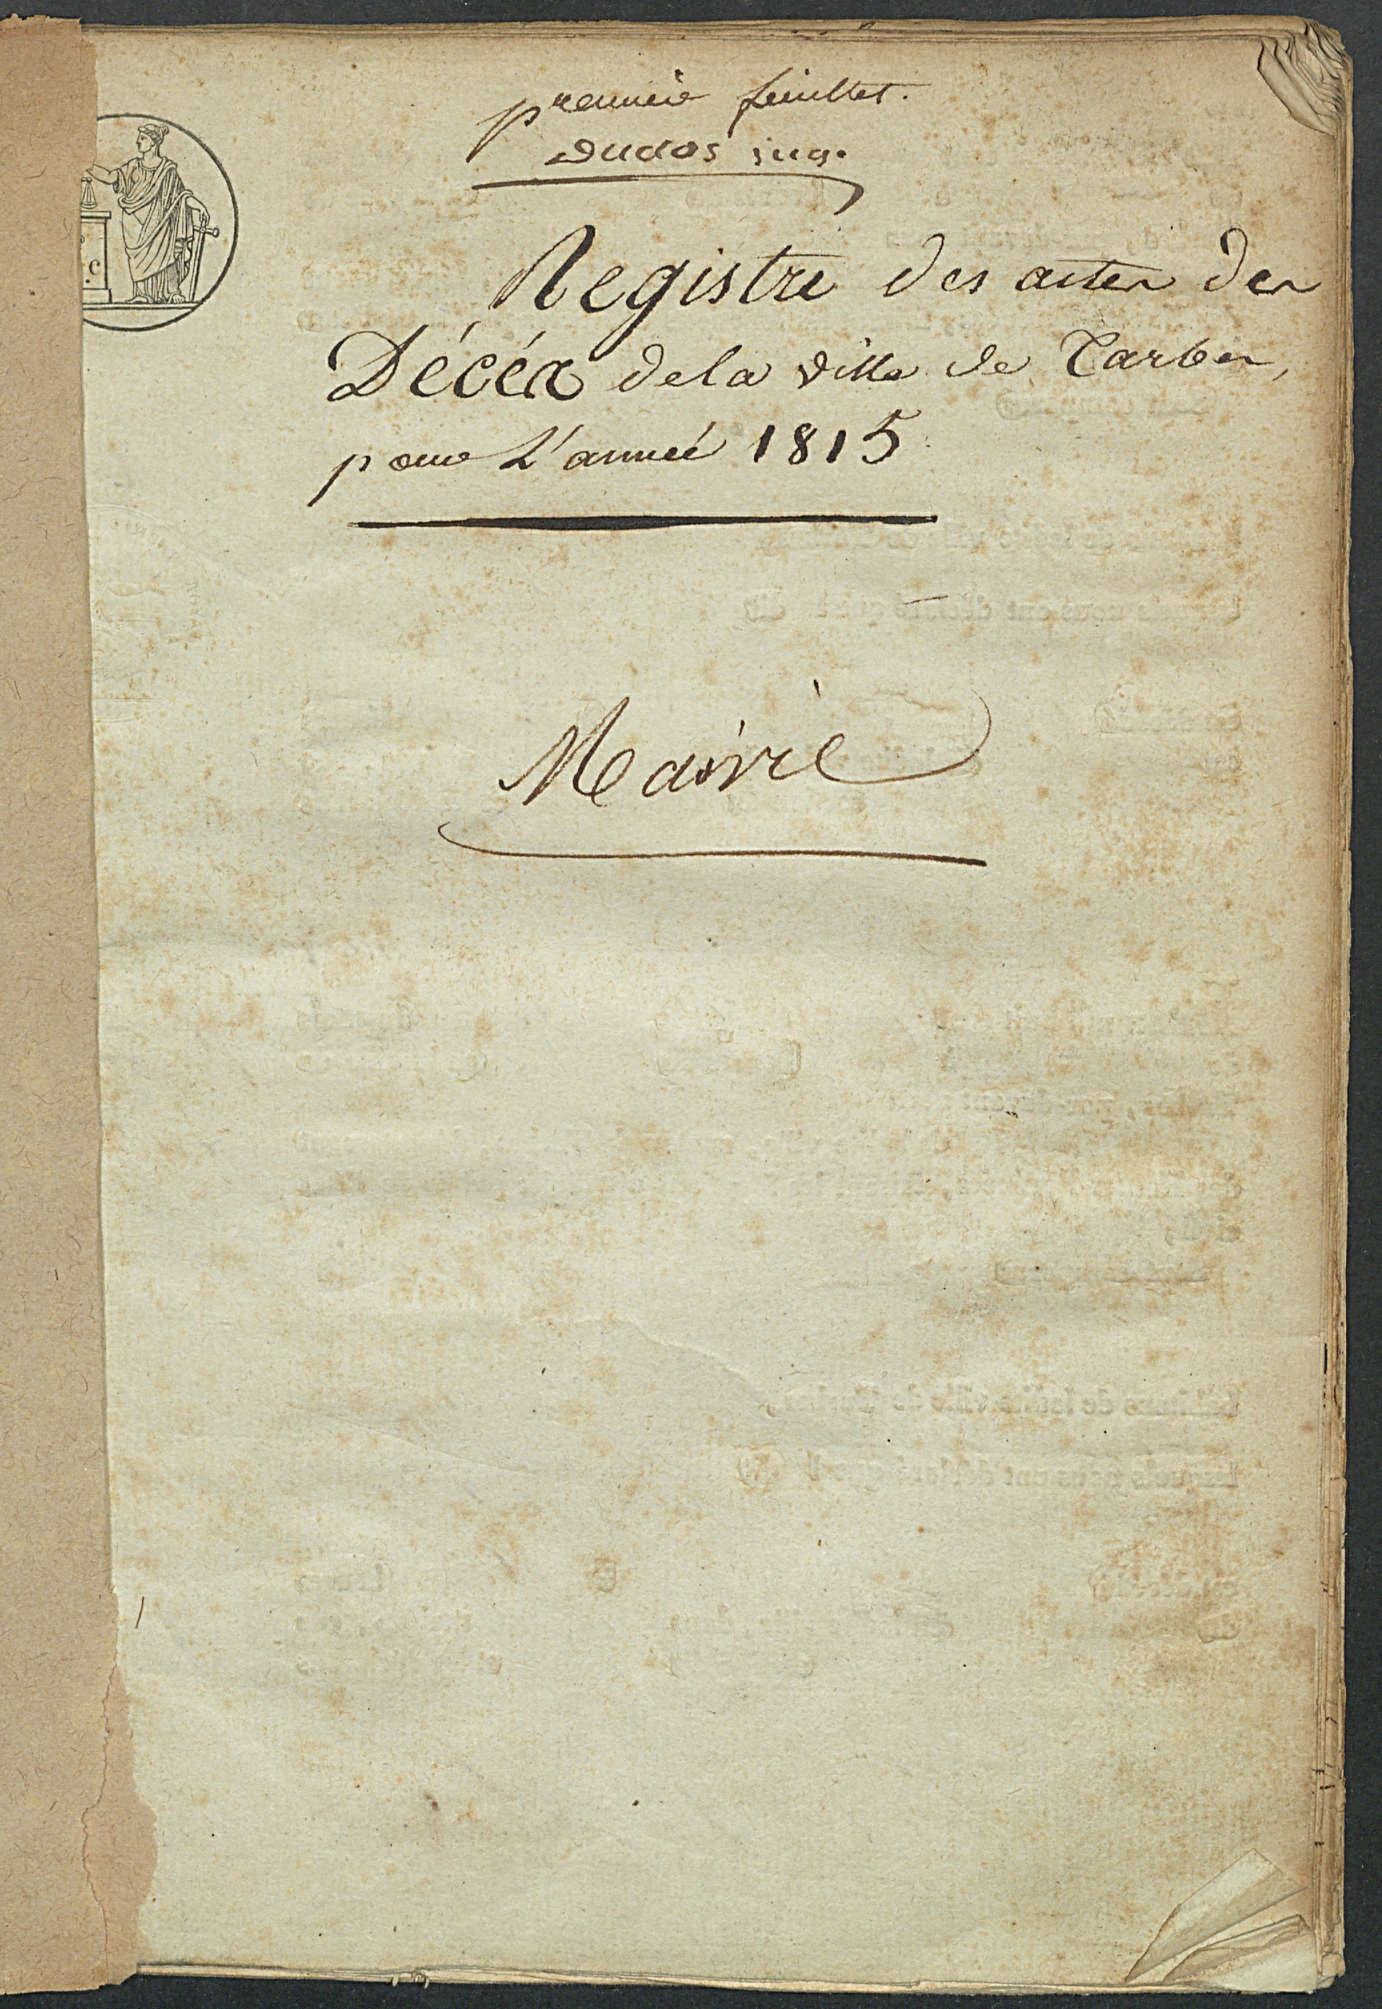 premier feuillet.
Duclos jug.
Registre des actes des
Décés de la ville de Tarbes,
pour L'année 1815
Mairie